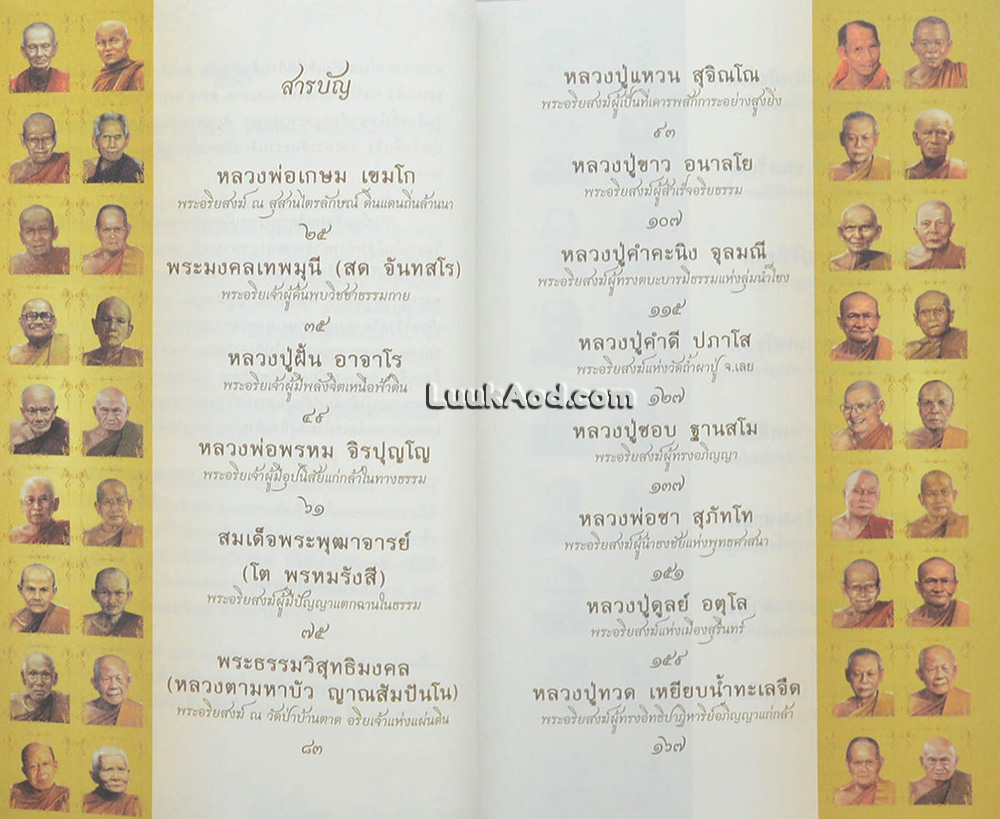 สารบัญ
หลวงพ่อเกษม เขมโก
พระอริยสงฆ์ ณ สุสานไตรลักษณ์ ดินแดนถิ่นล้านนา
๒๕
พระมงคลเทพมุนี (สด จันทสโร)
พระอริยเจ้าผู้ค้นพบวิชชาธรรมกาย
๓๕
หลวงปู่ฝั้น อาจาโร
พระอริยเจ้าผู้มีพลังจิตเหนือฟ้าดิน
๔๙
หลวงพ่อพรหม จิรปุญโญ
พระอริยเจ้าผู้มีอุปนิสัยแก่กล้าในทางธรรม
๖๑
สมเด็จพระพุฒาจารย์
(โต พรหมรังสี)
พระอริยสงฆ์ผู้มีปัญญาแตกฉานในธรรม
๗๕
พระธรรมวิสุทธิมงคล
(หลวงตามหาบัว ญาณสัมปันโน)
พระอริยสงฆ์ ณ วัดป่าบ้านตาด อริยเจ้าแห่งแผ่นดิน
๘๓
หลวงปู่แหวน สุจิณโณ
พระอริยสงฆ์ผู้เป็นที่เคารพสักการะอย่างสูงยิ่ง
๙๓
หลวงปู่ขาว อนาลโย
พระอริยสงฆ์ผู้สำเร็จอริยธรรม
๑๐๗
หลวงปู่คำคะนิง จุลมณี
พระอริยสงฆ์ผู้ทรงตบะบารมีธรรมแห่งลุ่มน้ำโขง
๑๑๕
หลวงปู่คำดี ปภาโส
พระอริยสงฆ์แห่งวัดถ้ำผาปู่ จ.เลย
๑๒๗
หลวงปู่ชอบ ฐานสโม
พระอริยสงฆ์ผู้ทรงอภิญญา
๑๓๗
หลวงพ่อชา สุภัทโท
พระอริยสงฆ์ผู้นำธงชัยแห่งพุทธศาสนา
๑๕๑
หลวงปู่ดูลย์ อตุโล
พระอริยสงฆ์แห่งเมืองสุรินทร์
๑๕๙
หลวงปู่ทวด เหยียบน้ำทะเลจืด
พระอริยสงฆ์ผู้ทรงอิทธิปาฏิหาริย์อภิญญาแก่กล้า
๑๖๗
LuukAod.com